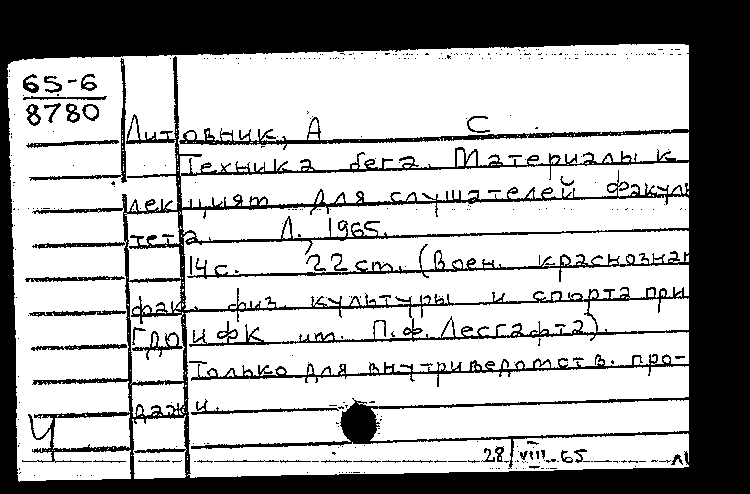 65-6
8780
Литовник, А С
Техника бега. Материалы к
лекциям для слушателей факуль
тета. Л., 1965.
14 с. 22 cm. (Воен. краснознам
фак. физ. культуры и спорта при
ГДОИФК им. П.Ф. Лесгафта).
Только для внутриведомств. про-
дажи.
Ч
28/VIII-65